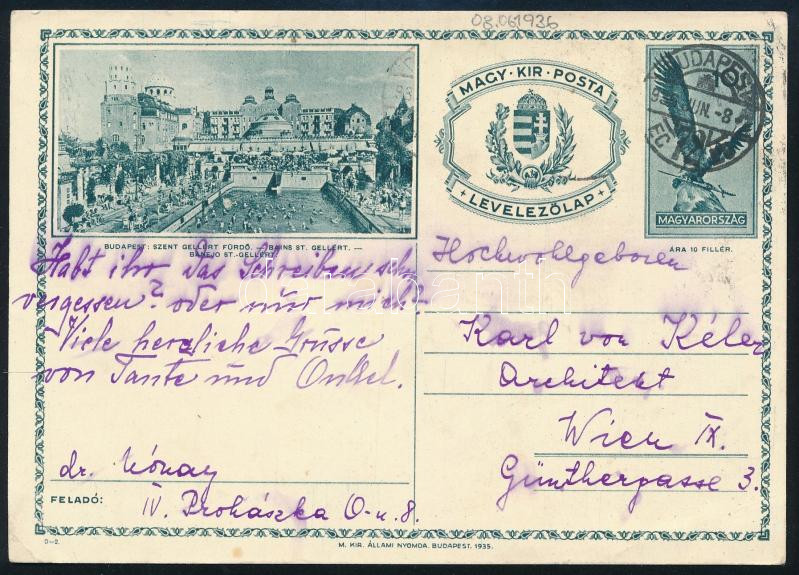 08.061936
MAGY·KIR·POSTA
LEVELEZŐLAP
BUDAPEST
JUN. -8
10
MAGYARORSZÁG
ÁRA 10 FILLÉR.
BUDAPEST: SZENT GELLÉRT FÜRDŐ. — BAINS ST. GELLÉRT. —
ST.-GELLÉRT.
Habt ihr das Schreiben schon
vergessen? oder nur mich?
Viele herzliche Grüsse
von Tante und Onkel.
Hochwohlgeboren
Karl von Kéler
Architekt
Wien IX.
Günthergasse 3.
dr. Rónay
FELADÓ: IV. Prohászka O-u. 8.
D—2.
M. KIR. ÁLLAMI NYOMDA. BUDAPEST. 1935.